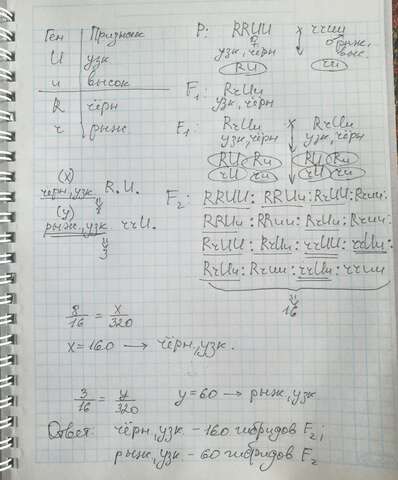 Ген | Признак
U | узк
u | высок
R | чёрн
r | рыж
P: RRUU x rruu
♀ узк, чёрн рыж, выс.
RU ru
F1: RrUu
узк, чёрн
F1: RrUu x RrUu
узк, чёрн узк, чёрн
RU Ru RU Ru
rU ru rU ru
(x)
черн, узк R.U.
(y) 8
рыж, узк rrU.
3
F2: RRUU : RRUu : RrUU : RrUu :
RRUu : RRuu : RrUu : Rruu :
RrUU : RrUu : rrUU : rrUu :
RrUu : Rruu : rrUu : rruu
16
8/16 = x/320
x=160 → чёрн, узк.
3/16 = y/320 y=60 → рыж, узк
Ответ: чёрн, узк. - 160 гибридов F2;
рыж, узк - 60 гибридов F2